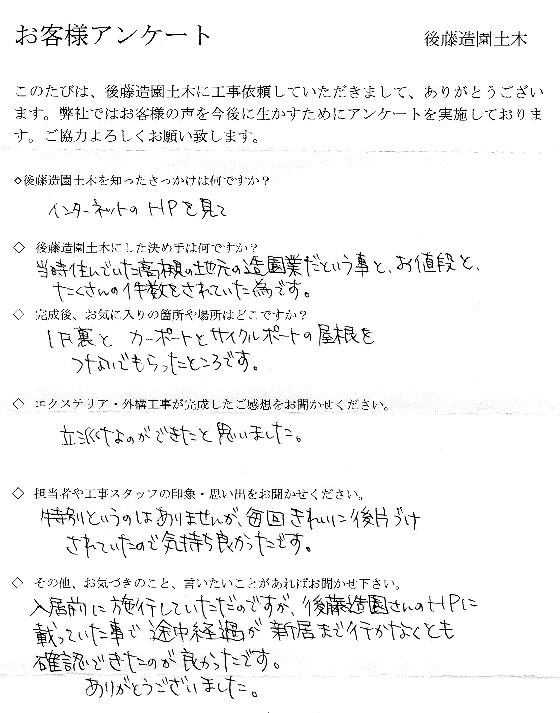 お客様アンケート
後藤造園土木
このたびは、後藤造園土木に工事依頼していただきまして、ありがとうござい
ます。弊社ではお客様の声を今後に生かすためにアンケートを実施しておりま
す。ご協力よろしくお願い致します。
◇後藤造園土木を知ったきっかけは何ですか？
インターネットのHPを見て
◇ 後藤造園土木にした決め手は何ですか？
当時住んでいた高槻の地元の造園業だという事と、お値段と、
たくさんの件数をされていた為です。
◇ 完成後、お気に入りの箇所や場所はどこですか？
1F裏と カーポートとサイクルポートの屋根を
つないでもらったところです。
◇ エクステリア・外構工事が完成したご感想をお聞かせください。
立派なのができたと思いました。
◇ 担当者や工事スタッフの印象・思い出をお聞かせください。
特別というのはありませんが、毎回きれいに後片づけ
されていたので気持ち良かったです。
◇ その他、お気づきのこと、言いたいことがあればお聞かせ下さい。
入居前に施行していただのですが、後藤造園さんのHPに
載っていた事で途中経過が新居まで行かなくとも
確認できたのが良かったです。
ありがとうございました。